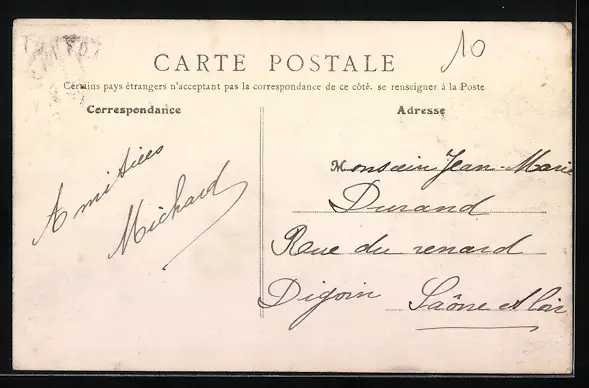 10
CARTE POSTALE
Certains pays étrangers n'acceptant pas la correspondance de ce côté, se renseigner à la Poste
Correspondance
Adresse
Amitiées
Michard
Monsieur Jean-Marie
Durand
Rue du renard
Digoin Saône et Loir